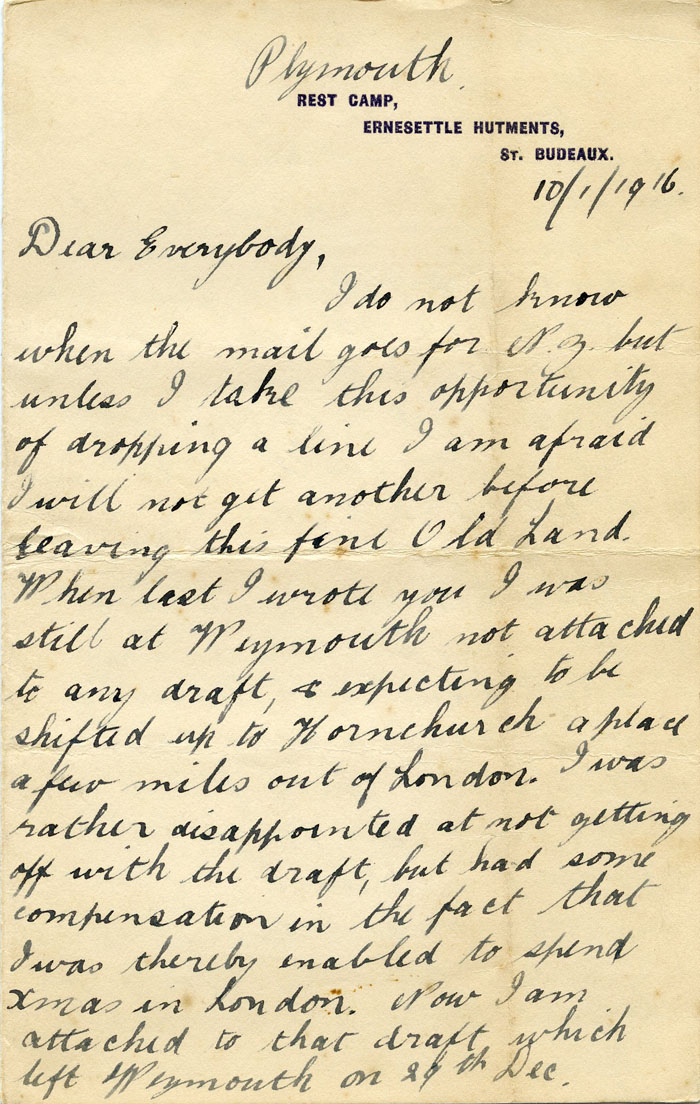 Plymouth
REST CAMP,
ERNESETTLE HUTMENTS,
ST. BUDEAUX.
10/1/1916.
Dear Everybody,
I do not know
when the mail goes for N.Z. but
unless I take this opportunity
of dropping a line I am afraid
I will not get another before
leaving this fine Old Land.
When last I wrote you I was
still at Weymouth not attached
to any draft, & expecting to be
shifted up to Hornchurch a place
a few miles out of London. I was
rather disappointed at not getting
off with the draft, but had some
compensation in the fact that
I was thereby enabled to spend
xmas in London. Now I am
attached to that draft which
left Weymouth on 29th Dec.